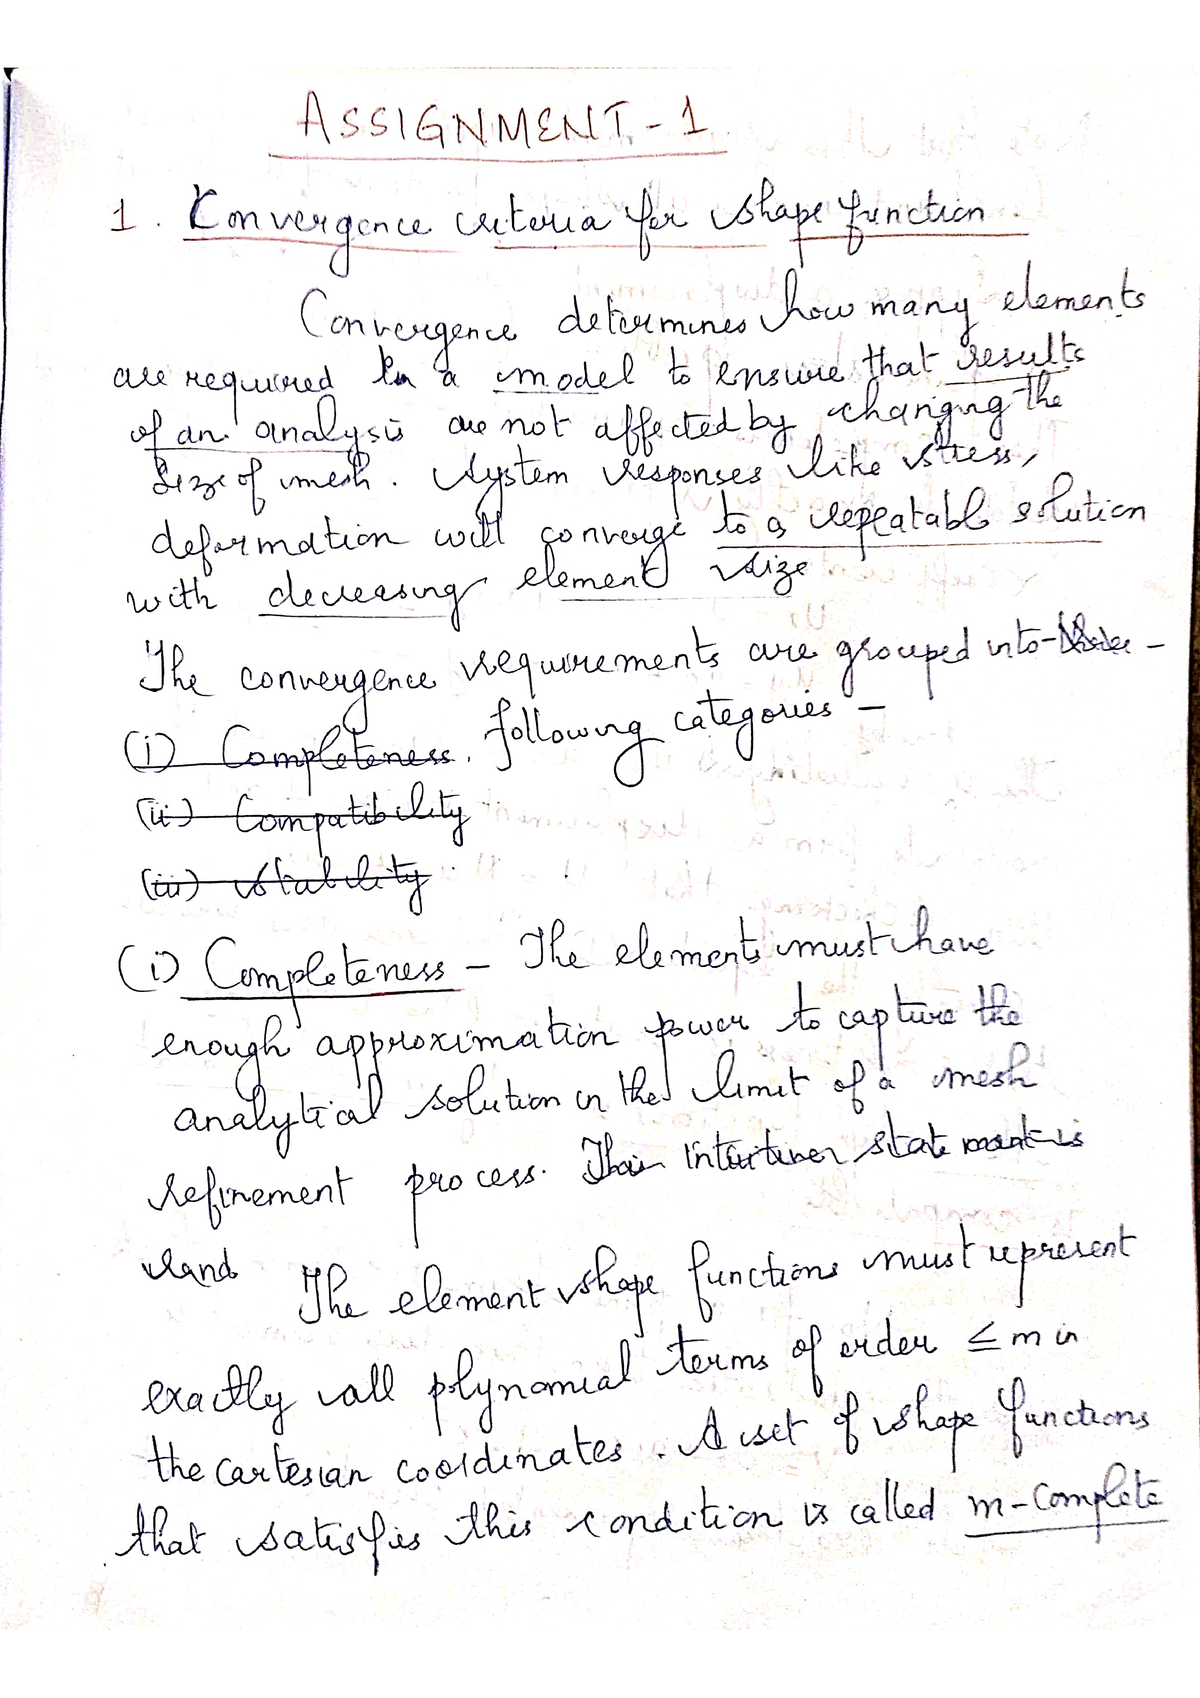 ASSIGNMENT-1
1. Convergence criteria for shape function
Convergence determines how many elements
are required in a model to ensure that results
of an analysis are not affected by changing the
size of mesh. System responses like stress,
deformation will converge to a repeatable solution
with decreasing element size
The convergence requirements are grouped into -
following categories -
(i) Completeness.
(ii) Compatibility
(iii) Stability
(i) Completeness - The elements must have
enough approximation power to capture the
analytical solution in the limit of a mesh
refinement process. statement is
The element shape functions must represent
exactly all polynomial terms of order ≤ m in
the cartesian coordinates. A set of shape functions
that satisfies this condition is called m-complete